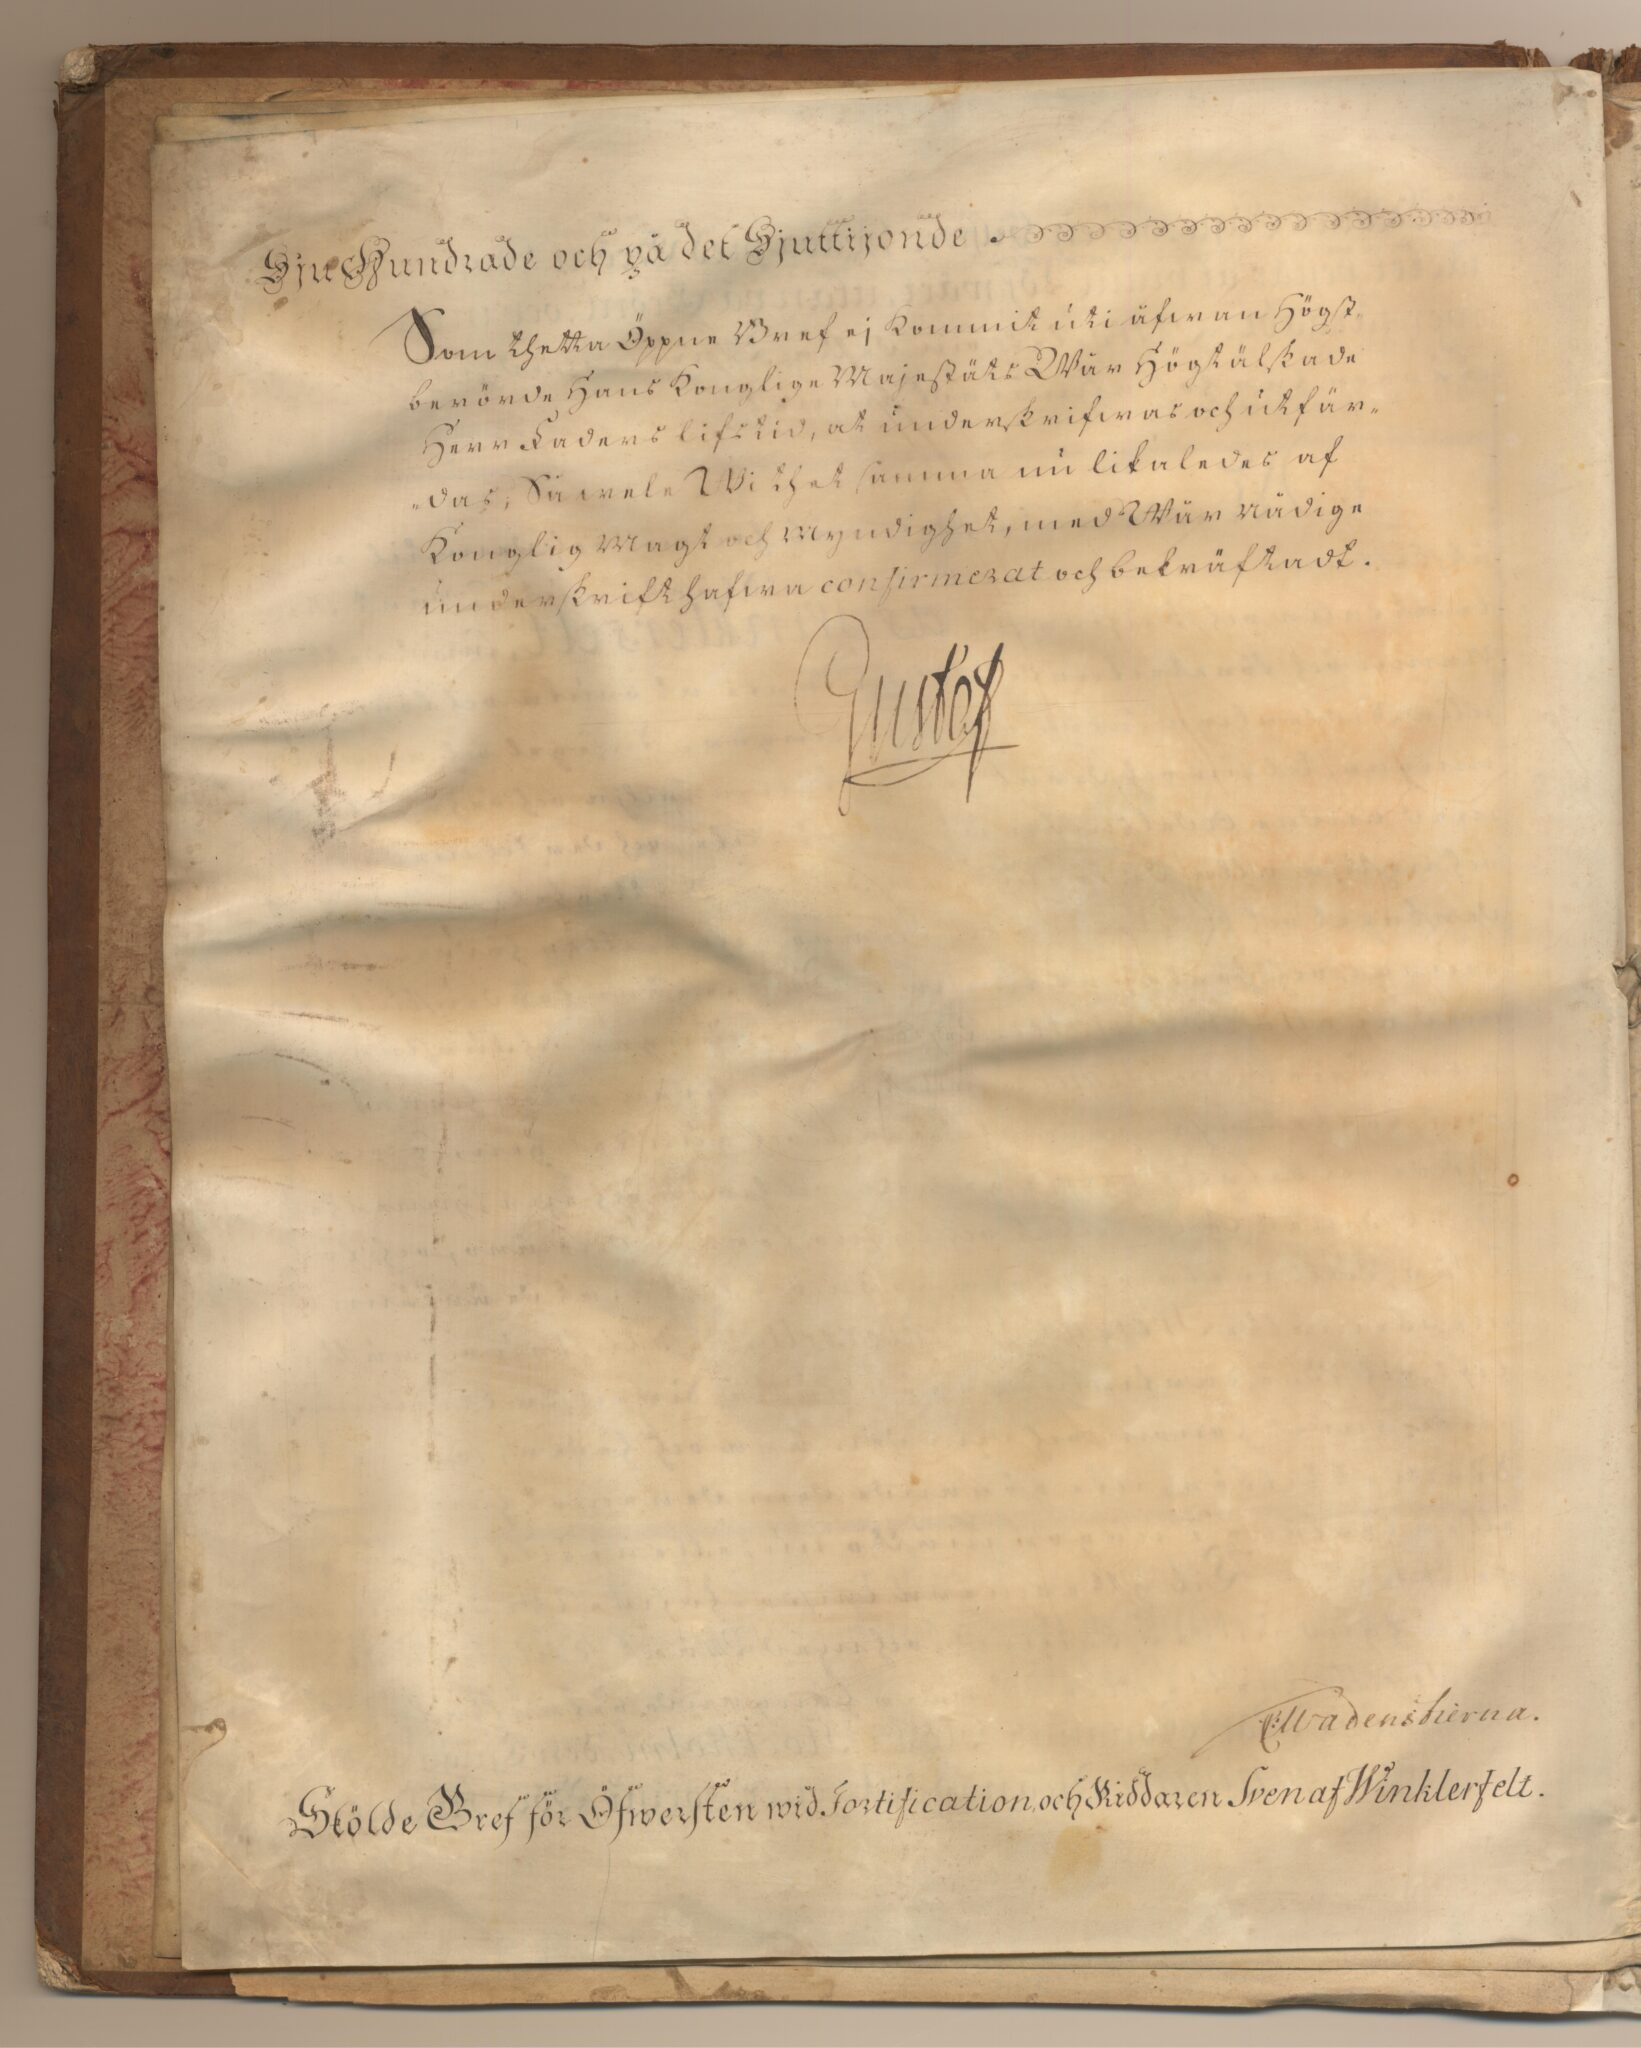 Sju Hundrade och på det Sjuttijonde.
Som thetta Öppne Bref ej kommit uti äfwan Högst-
berörde Hans Konglige Majestäts Wår Högtälskade
Herr Faders lifstid, at underskrifwas och utfär-
-das, Så wele Wi thet samma nu likaledes af
Konglig Magt och Myndighet, med Wår Nådige
underskrift hafwa confirmerat och bekräftadt.
Gustaf
Wadenstierna.
Skölde Bref för Öfwersten wid Fortification, och Riddaren Sven af Winklerfelt.